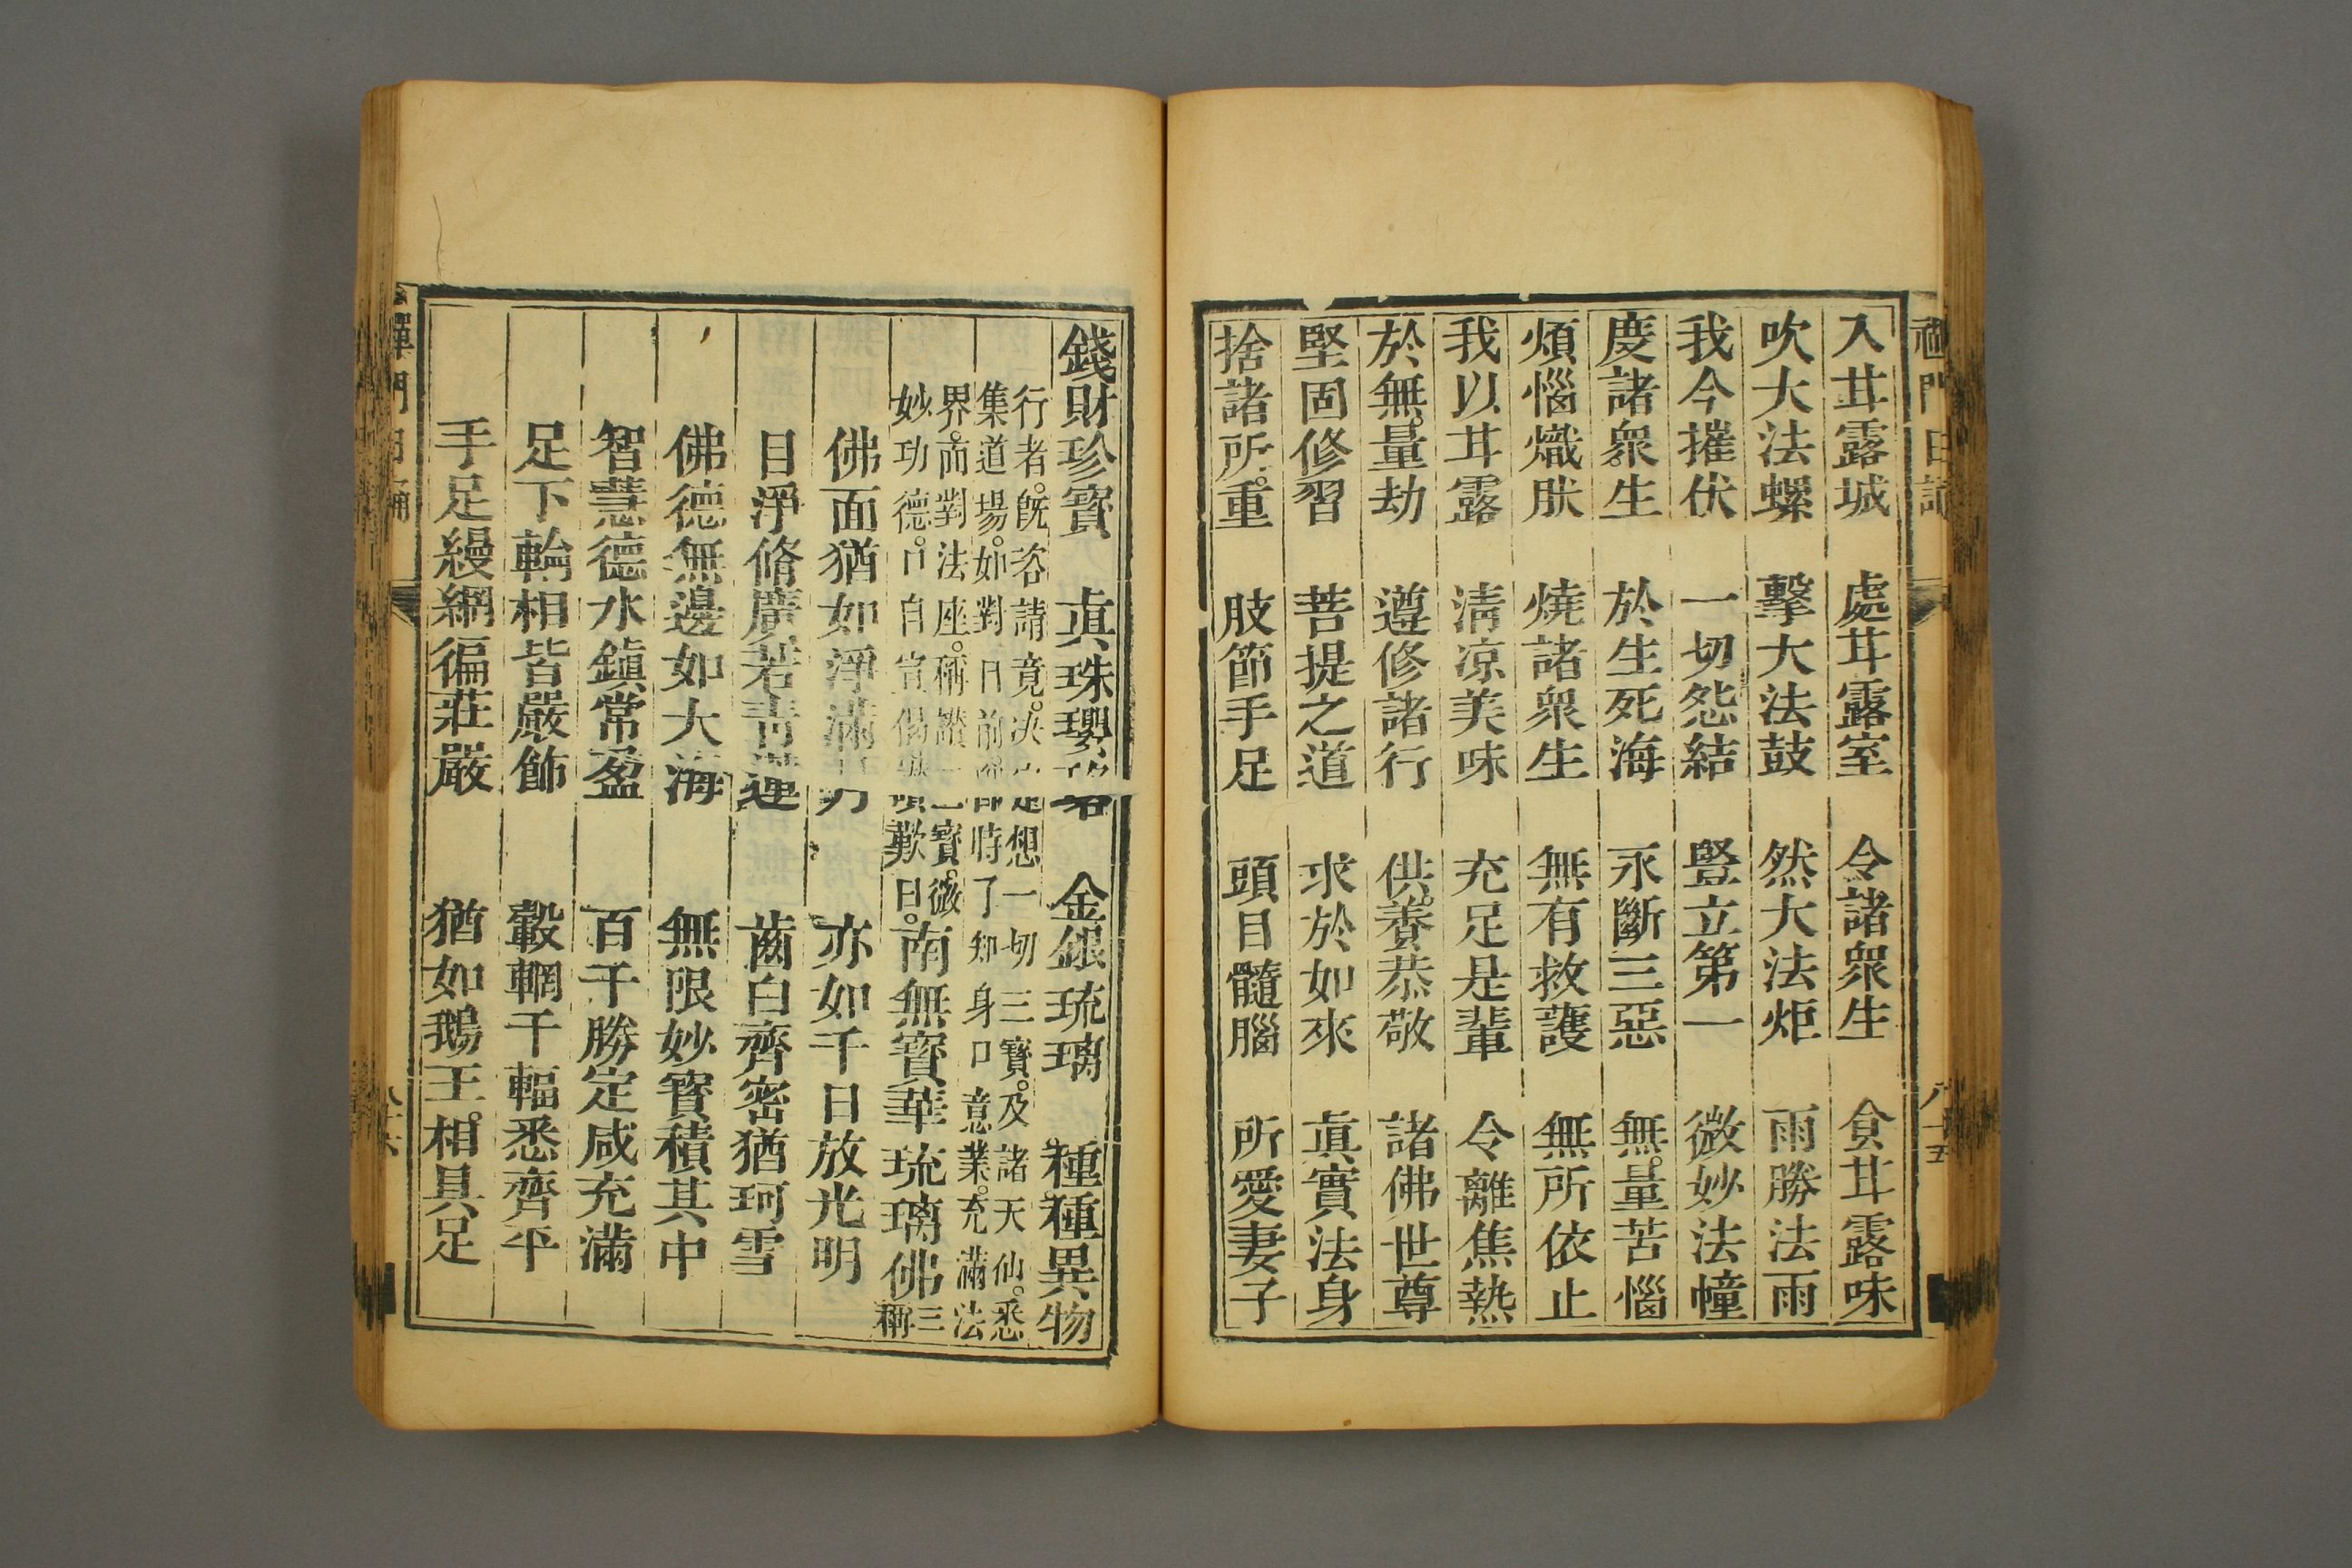 入甘露城 處甘露室 令諸衆生 食甘露味
吹大法螺 擊大法鼓 然大法炬 雨勝法雨
我今摧伏 一切怨結 豎立第一 微妙法幢
度諸衆生 於生死海 永斷三惡 無量苦惱
煩惱熾然 燒諸衆生 無有救護 無所依止
我以甘露 清凉美味 充足是輩 令離焦熱
於無量劫 遵修諸行 供養恭敬 諸佛世尊
堅固修習 菩提之道 求於如來 眞實法身
捨諸所重 肢節手足 頭目髓腦 所愛妻子
錢財珍寳 眞珠瓔珞 金銀琉璃 種種異物
行者。旣咨請竟。决定想一切三寳。及諸天仙。悉
集道場。如對目前卽時了知身口意業。充滿法
界。而對法座。稱讚三寳。微
妙功德。口自宣偈讚歎曰。南無寳華琉璃佛三稱
佛面猶如淨滿月 亦如千日放光明
目淨脩廣若青蓮 齒白齊密猶珂雪
佛德無邊如大海 無限妙寳積其中
智慧德水鎮常盈 百千勝定咸充滿
足下輪相皆嚴飾 轂輞千輻悉齊平
手足縵網徧莊嚴 猶如鵝王相具足